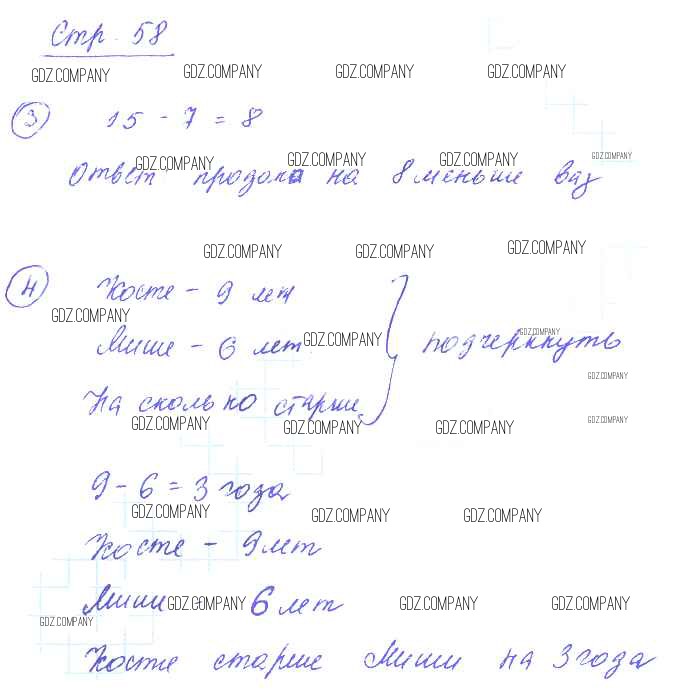 Стр. 58
GDZ.COMPANY GDZ.COMPANY GDZ.COMPANY GDZ.COMPANY
3 15 - 7 = 8
GDZ.COMPANY GDZ.COMPANY GDZ.COMPANY GDZ.COMPANY
Ответ продола на 8 меньше ваз
GDZ.COMPANY GDZ.COMPANY GDZ.COMPANY
4 Косте - 9 лет
GDZ.COMPANY GDZ.COMPANY GDZ.COMPANY
Мише - 6 лет подчеркнуть
GDZ.COMPANY
На сколько старше
GDZ.COMPANY GDZ.COMPANY GDZ.COMPANY GDZ.COMPANY
9 - 6 = 3 года
GDZ.COMPANY GDZ.COMPANY GDZ.COMPANY
Косте - 9 лет
Миши GDZ.COMPANY 6 лет GDZ.COMPANY GDZ.COMPANY
GDZ.COMPANY
Косте старше Миши на 3 года